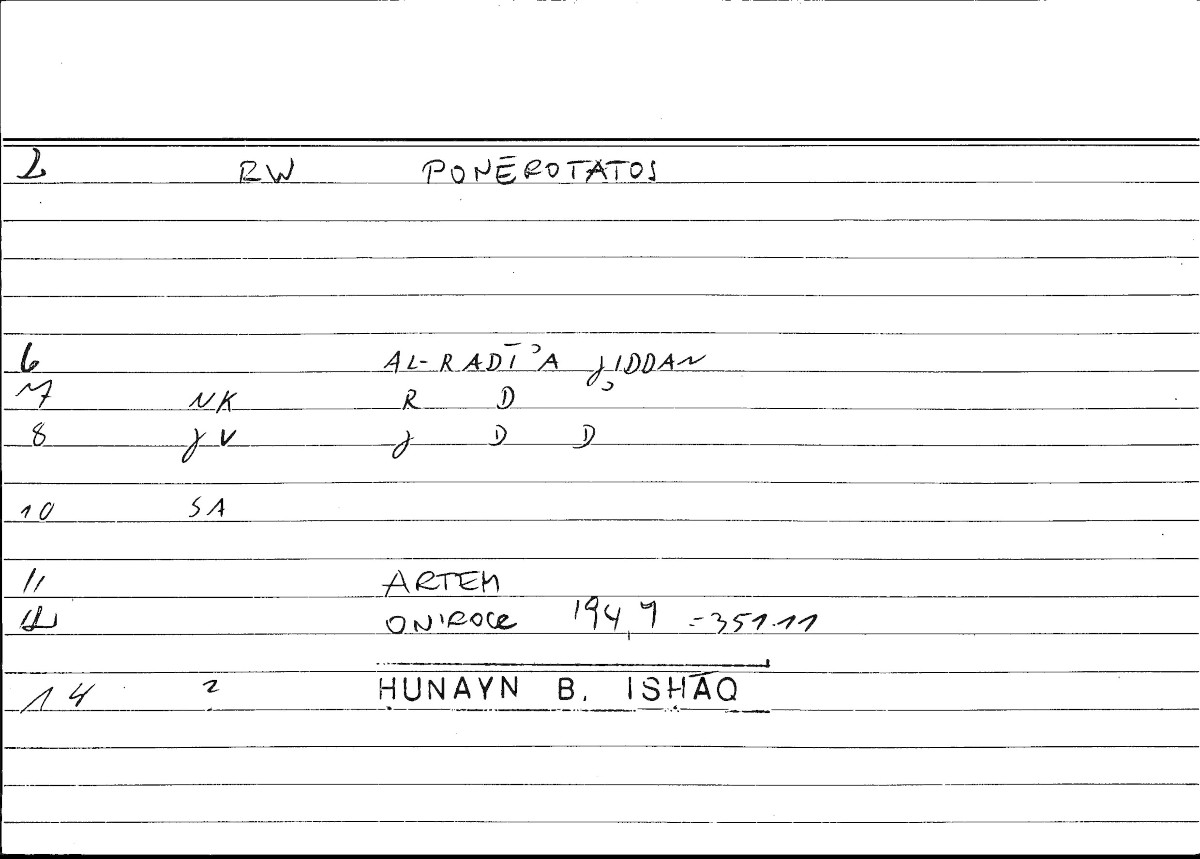 2 RW PONĒROTATOS
6 AL-RADĪʾA JIDDAN
7 NK R D ʾ
8 JV J D D
10 SA
11 ARTEM
12 ONIROCR 194,7 = 351.11
14 2 ḤUNAYN B. ISḤĀQ